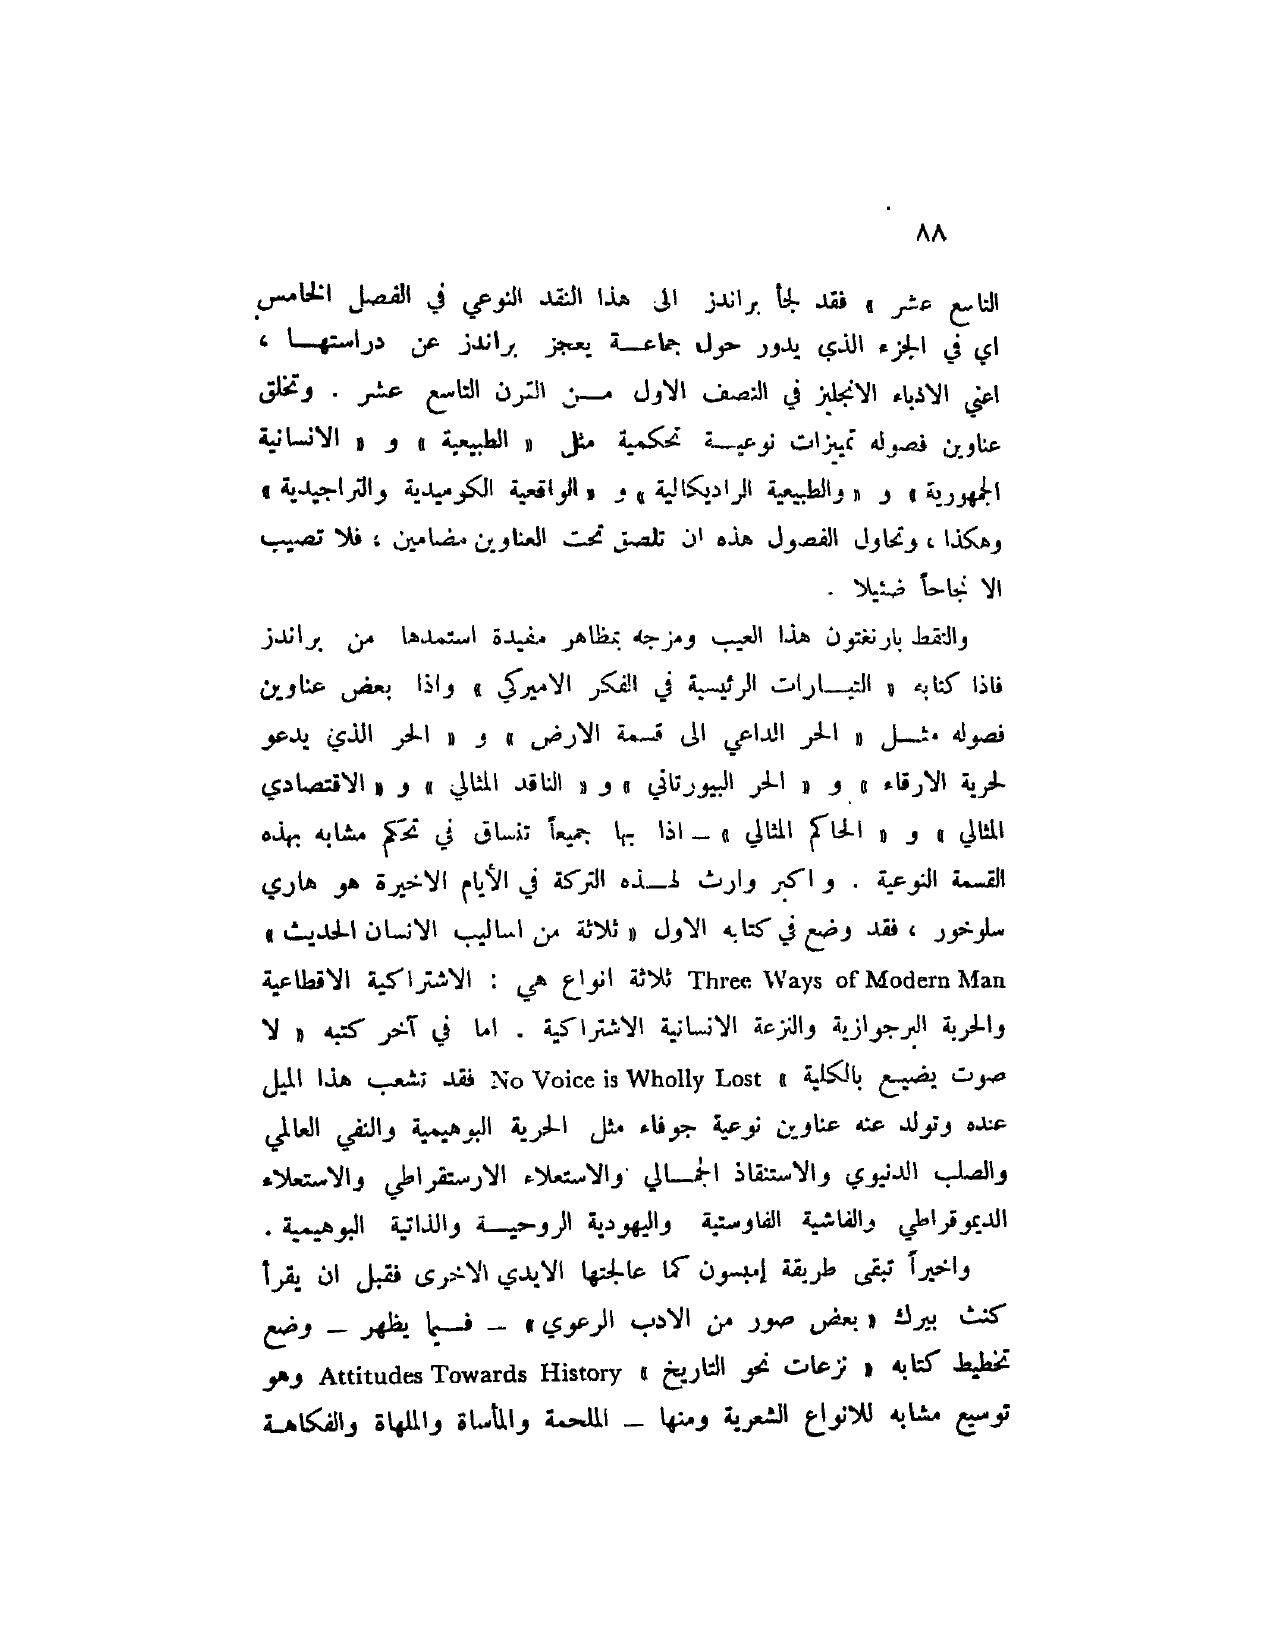 ٨٨
التاسع عشر » فقد لجأ براندز الى هذا النقد النوعي في الفصل الخامس
اي في الجزء الذي يدور حول جماعة يعجز براندز عن دراستها ،
اعني الادباء الانجليز في النصف الاول من القرن التاسع عشر . وتخلق
عناوين فصوله تميزات نوعية تحكمية مثل « الطبيعية » و « الانسانية
الجمهورية » و « والطبيعية الراديكالية » و « الواقعية الكوميدية والتراجيدية »
وهكذا ، وتحاول الفصول هذه ان تلصق تحت العناوين مضامين ؛ فلا تصيب
الا نجاحاً ضئيلا .
والتقط بارنغتون هذا العيب ومزجه بمظاهر مفيدة استمدها من براندز
فاذا كتابه « التيارات الرئيسية في الفكر الاميركي » واذا بعض عناوين
فصوله مثل « الحر الداعي الى قسمة الارض » و « الحر الذي يدعو
لحرية الارقاء » و « الحر البيورتاني » و « الناقد المثالي » و « الاقتصادي
المثالي » و « الحاكم المثالي » – اذا بها جميعاً تنساق في تحكم مشابه بهذه
القسمة النوعية . واكبر وارث لهذه التركة في الأيام الاخيرة هو هاري
سلوخور ، فقد وضع في كتابه الاول « ثلاثة من اساليب الانسان الحديث »
Three Ways of Modern Man ثلاثة انواع هي : الاشتراكية الاقطاعية
والحرية البرجوازية والنزعة الانسانية الاشتراكية . اما في آخر كتبه « لا
صوت يضيع بالكلية » No Voice is Wholly Lost فقد تشعب هذا الميل
عنده وتولد عنه عناوين نوعية جوفاء مثل الحرية البوهيمية والنفي العالمي
والصلب الدنيوي والاستنقاذ الجمالي والاستعلاء الارستقراطي والاستعلاء
الديموقراطي والفاشية الفاوستية واليهودية الروحية والذاتية البوهيمية .
واخيراً تبقى طريقة إمبسون كما عالجتها الايدي الاخرى فقبل ان يقرأ
كنث بيرك « بعض صور من الادب الرعوي » – فيما يظهر – وضع
تخطيط كتابه « نزعات نحو التاريخ » Attitudes Towards History وهو
توسيع مشابه للانواع الشعرية ومنها – الملحمة والمأساة والملهاة والفكاهة